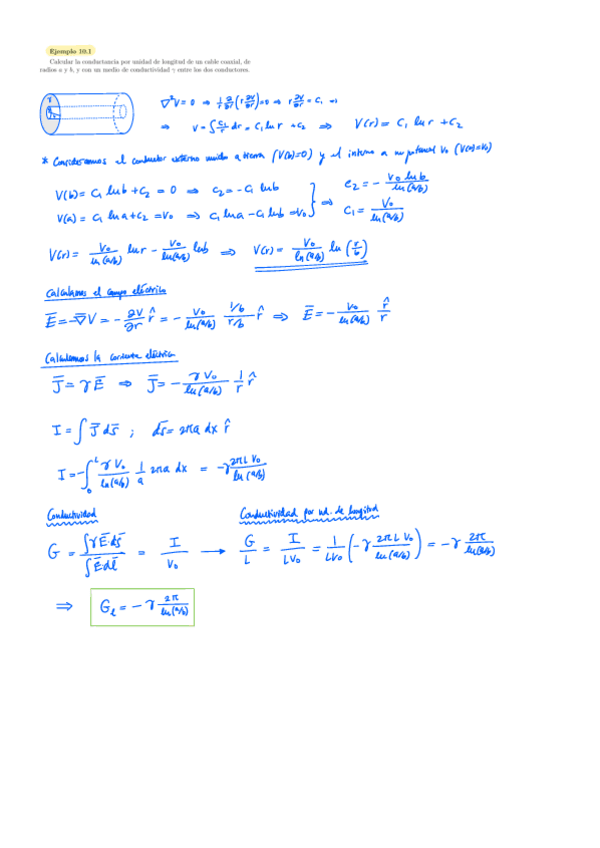 Ejemplo 10.1
Calcular la conductancia por unidad de longitud de un cable coaxial, de
radios a y b, y con un medio de conductividad γ entre los dos conductores.
∇²V = 0 ⇒ 1/r ∂/∂r (r ∂V/∂r) = 0 ⇒ r ∂V/∂r = C₁ ⇒
⇒ V = ∫ C₁/r dr = C₁ ln r + C₂ ⇒ V(r) = C₁ ln r + C₂
* Consideramos el conductor externo unido a tierra (V(b)=0) y el interno a un potencial V₀ (V(a)=V₀)
V(b) = C₁ ln b + C₂ = 0 ⇒ C₂ = - C₁ ln b
V(a) = C₁ ln a + C₂ = V₀ ⇒ C₁ ln a - C₁ ln b = V₀ } ⇒ C₂ = - V₀ ln b / ln(a/b)
C₁ = V₀ / ln(a/b)
V(r) = V₀/ln(a/b) ln r - V₀/ln(a/b) ln b ⇒ V(r) = V₀/ln(a/b) ln (r/b)
Calculamos el campo eléctrico
E̅ = -∇̅V = - ∂V/∂r r̂ = - V₀/ln(a/b) (1/b)/(r/b) r̂ ⇒ E̅ = - V₀/ln(a/b) r̂/r
Calculamos la corriente eléctrica
J̅ = γ E̅ ⇒ J̅ = - γ V₀/ln(a/b) 1/r r̂
I = ∫ J̅ ds̅ ; ds̅ = 2πa dx r̂
I = - ∫₀ᴸ γ V₀/ln(a/b) 1/a 2πa dx = - γ 2πL V₀/ln(a/b)
Conductividad
Conductividad por ud. de longitud
G = ∫γ E̅ ds̅ / ∫E̅ dl̅ = I/V₀ → G/L = I/LV₀ = 1/LV₀ (- γ 2πL V₀/ln(a/b)) = - γ 2π/ln(a/b)
⇒ Gₗ = - γ 2π/ln(a/b)